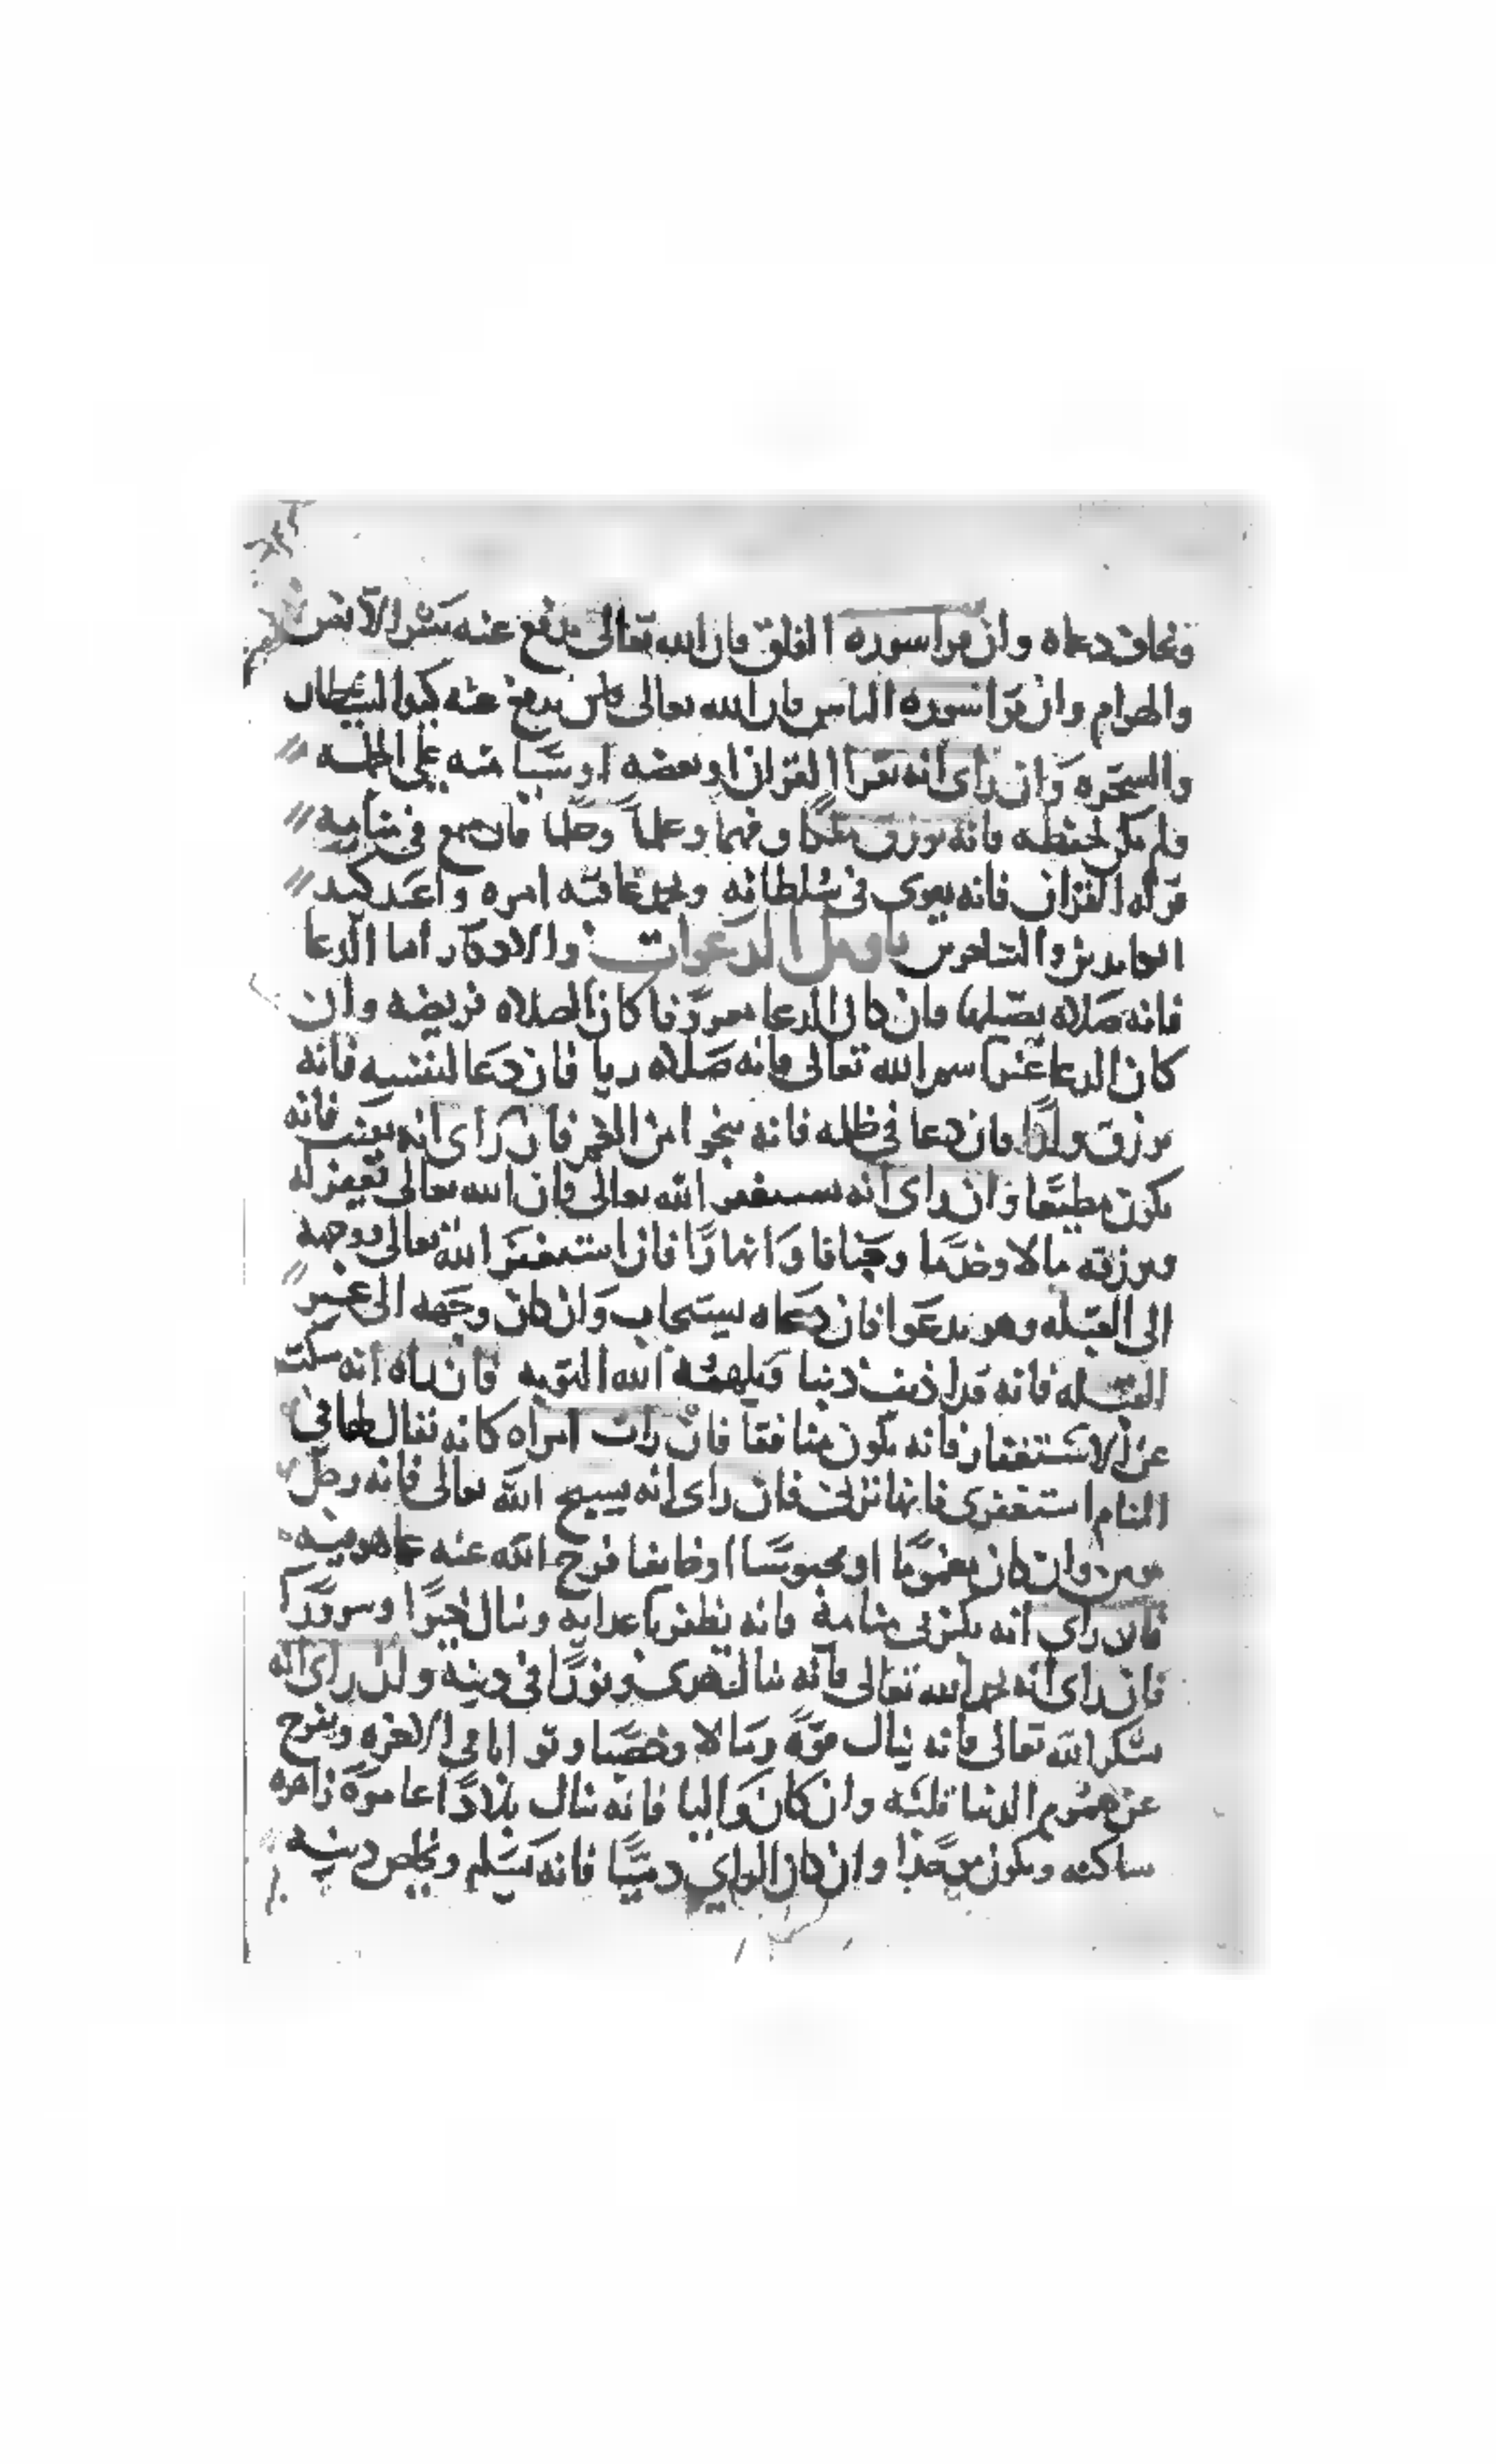 ويخاف دعاه وان قرا سوره الفلق فان الله تعالى يدفع عنه شر الانس
والهوام وان قرا سوره الناس فان الله تعالى يدفع عنه كيد الشيطان
والسحره وان راى انه يقرا القران او بعضه او شيا منه على
ولم يكن يحفظه فانه يرزق ملكا وفهما وعلما وحلما فان سمع في منامه
قراه القران فانه يقوى في سلطانه عاقبه امره واعيد كيد
الحاسدين والساحرين تاويل الدعوات والادكار اما الدعا
فانه صلاه يصليها فان كان الدعا معروفا كان الصلاه فريضه وان
كان الدعا بغير اسم الله تعالى فانه صلاه ريا فان دعا لنفسه فانه
يرزق ولدا فان دعا في ظلمه فانه ينجوا من الغم فان راى انه يقنت فانه
يكون مطيعا وان راى انه يستغفر الله تعالى فان الله تعالى يغفر له
ويرزقه مالا وخدما وجنانا وانهارا فان استغفر الله تعالى ووجهه
الى القبله وهو يدعوا فان دعاه يستجاب وان كان وجهه الى غير
القبله فانه قد اذنب ذنبا ويلهمه الله التوبه فان راه انه سكت
عن الاستغفار فانه يكون منافقا فان رات امراه كانه يقال لها في
المنام استغفري فانها تزني فان راى انه يسبح الله تعالى فانه رجل
مومن وان كان مغموما او محبوسا او خايفا فرج الله عنه ما هو فيه
فان راى انه يكبر في منامه فانه يظفر باعدايه وينال خيرا وسرورا
فان راى انه يحمد الله تعالى فانه ينال هدى ونورا في دينه وان راى انه
شكر الله تعالى فانه ينال قوه ومالا وخصبا وثوابا في الاخره ويفرح
عن هموم الدنيا قلبه وان كان واليا فانه ينال بلادا عامره زاهره
ساكنه ويكون وان كان الراي دميا فانه يسلم ويخلص دينه